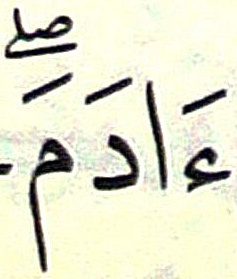 ءَادَمَۖ